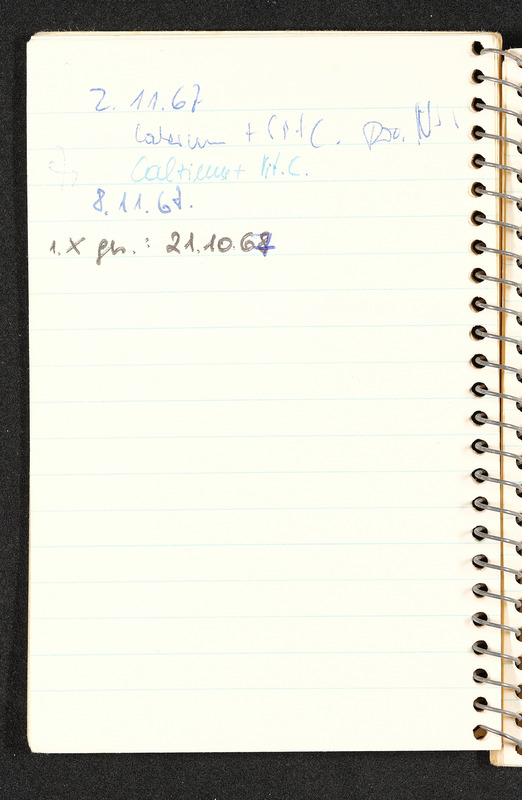 2. 11. 67
Calcium + Vit C.
Calzium + Vit. C.
8. 11. 67.
1. X gr. : 21. 10. 67